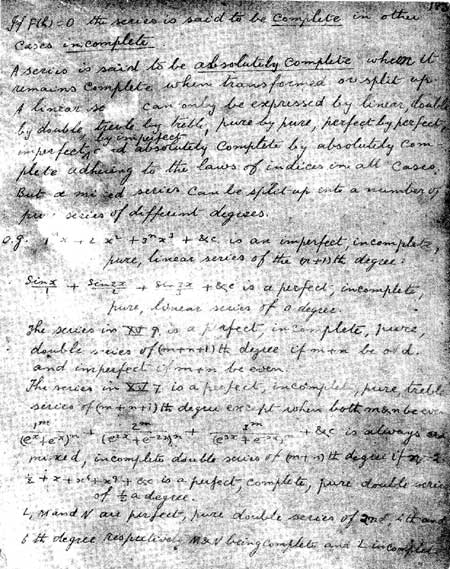 If F(h)=0 the series is said to be complete in other
cases incomplete.
A series is said to be absolutely complete when it
remains complete when transformed or split up.
A linear se can only be expressed by linear, double
by double, treble by treble, pure by pure, perfect by perfect,
imperfect by imperfect d absolutely complete by absolutely com
plete adhering to the laws of indices in all cases.
But a mixed series can be split up into a number of
pu series of different degrees.
e.g. 1ⁿx + 2ⁿx² + 3ⁿx³ + &c is an imperfect, incomplete,
pure, linear series of the (n+1)th degree.
Sin x/1 + Sin 2x/2 + Sin 3x/3 + &c is a perfect, incomplete,
pure, linear series of 0 degree.
The series in XV 9. is a perfect, incomplete, pure,
double series of (m+n+1)th degree if m+n be odd.
and imperfect if m+n be even.
The series in XV 7. is a perfect, incomplete, pure, treble
series of (m+n+1)th degree except when both m & n be even
1^m/(e^x+e^-x)^n + 2^m/(e^2x+e^-2x)^n + 3^m/(e^3x+e^-3x)^n + &c is always
mixed, incomplete double series of (m+1)th degree if
½ + x + x⁴ + x⁹ + &c is a perfect, complete, pure double series
of ½ a degree.
L, M and N are perfect, pure double series of 2nd, 4th and
6th degree respectively M & N being complete and L incomplete